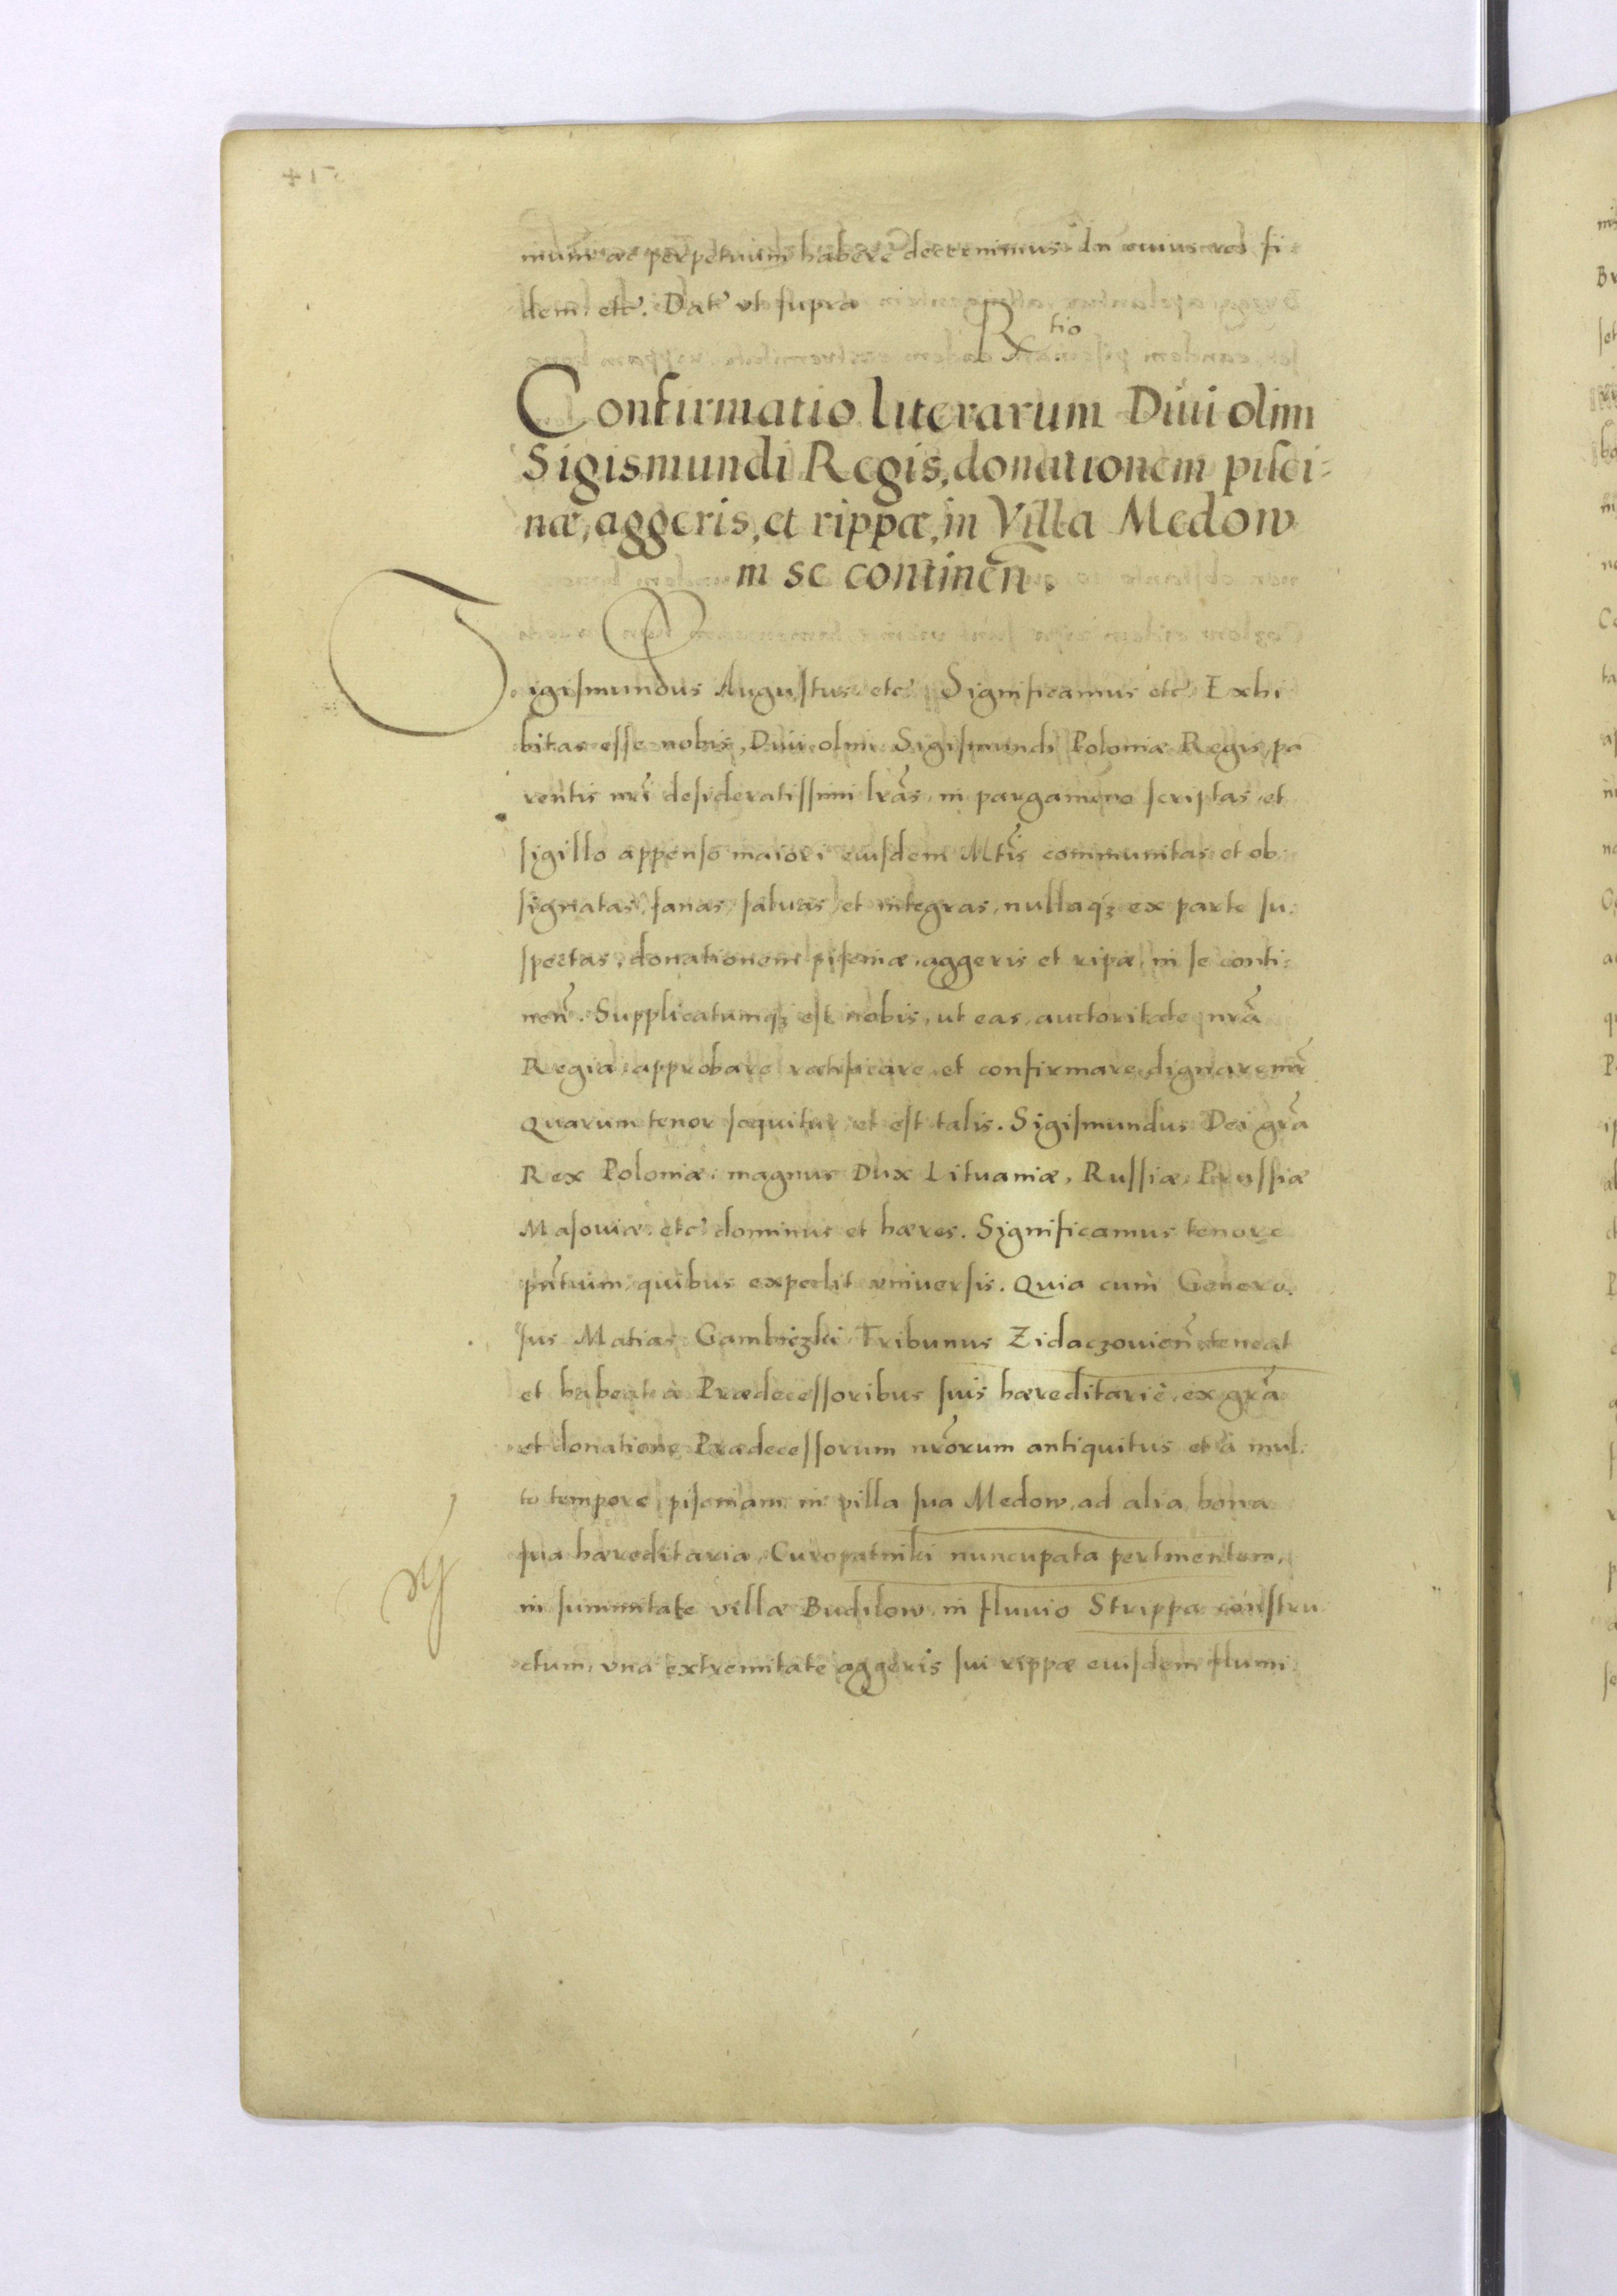 mum ac perpetuum habere decernimus. In cuius rei fi
dem etc. Dat ut supra
R tio
Confirmatio literarum Diui olim
Sigismundi Regis, donationem pisci=
næ, aggeris, et rippæ, in Villa Medow
in se continen̄.
Sigismundus Augustus etc Significamus etc Exhi
bitas esse nobis, Diui olim Sigismundi Poloniæ Regis, pa
rentis nr̄i desideratissimi lr̄as, in pargameno scriptas et
sigillo appenso maiori eiusdem Mt̄is communitas et ob
signatas, sanas, saluas, et integras, nullaqȝ ex parte su
spectas, donationem piscinæ, aggeris et ripæ, in se conti=
nen̄. Supplicatumqȝ est nobis, ut eas, auctoritate nr̄a
Regia, approbare ratificare, et confirmare dignaremr̄
Quarum tenor sequitur, et est talis. Sigismundus Dei gr̄a
Rex Poloniæ, magnus Dux Lituaniæ, Russiæ, Prussiæ
Masouiæ, etc dominus et hæres. Significamus tenore
pn̄tium, quibus expedit vniuersis. Quia cum Genero
sus Matias Gambiezki Tribunus Zidaczouien̄ teneat
et habeat à Prædecessoribus suis hæreditariè, ex gr̄a
et donatione Prædecessorum nr̄orum antiquitus et à mul
to tempore, piscinam in villa sua Medow, ad alia bona
sua hæreditaria, Curopatniki nuncupata pertinentem,
in summitate villæ Budilow, in fluuio Strippa constru
ctum, vna extremitate aggeris sui rippæ eiusdem flumi